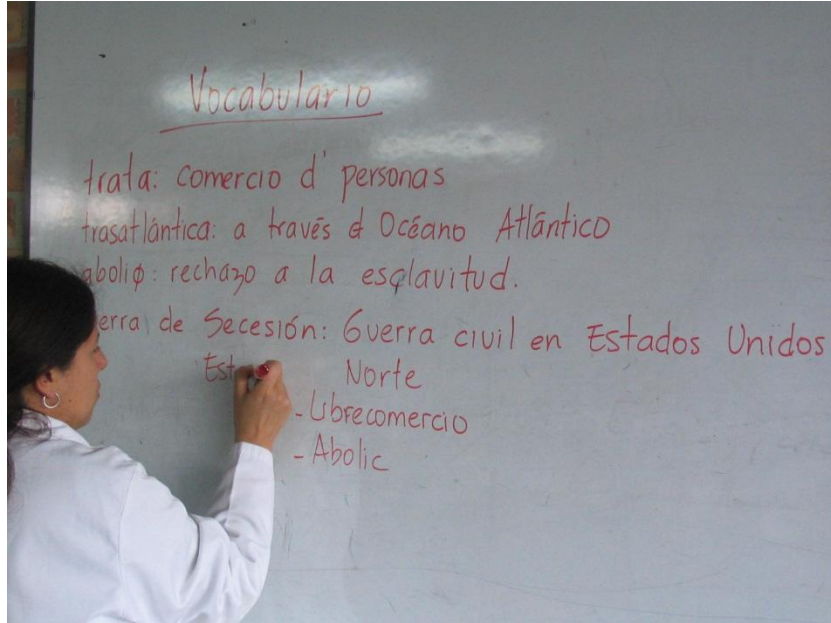 Vocabulario
trata: comercio d' personas
trasatlántica: a través d Océano Atlántico
aboliφ: rechazo a la esclavitud.
erra de Secesión: Guerra civil en Estados Unidos
Est Norte
- Librecomercio
- Abolic